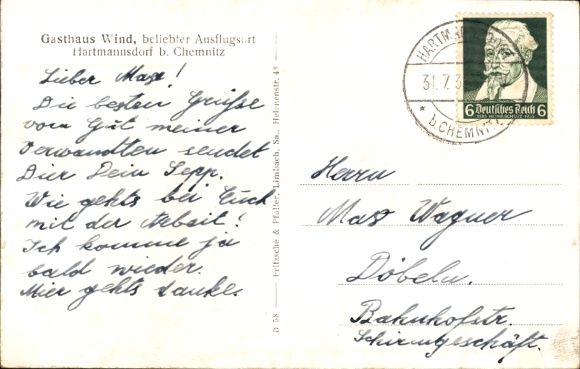 Gasthaus Wind, beliebter Ausflugsort
Hartmannsdorf b. Chemnitz
Lieber Max!
Die besten Grüße
vom Gut meiner
Verwandten sendet
Dier Dein Sepp.
Wie gehts bei Euch
mit der Arbeit!
Ich komme ja
bald wieder.
Mier gehts danke.
D 58 — Fritzsche & Pfaller, Limbach, Sa., Helenenstr. 43
HARTM
31.7.3
* b. CHEMNITZ
6 Deutsches Reich 6
Herrn
Max Wagner
Döbeln.
Bahnhofstr.
Schirmgeschäft.